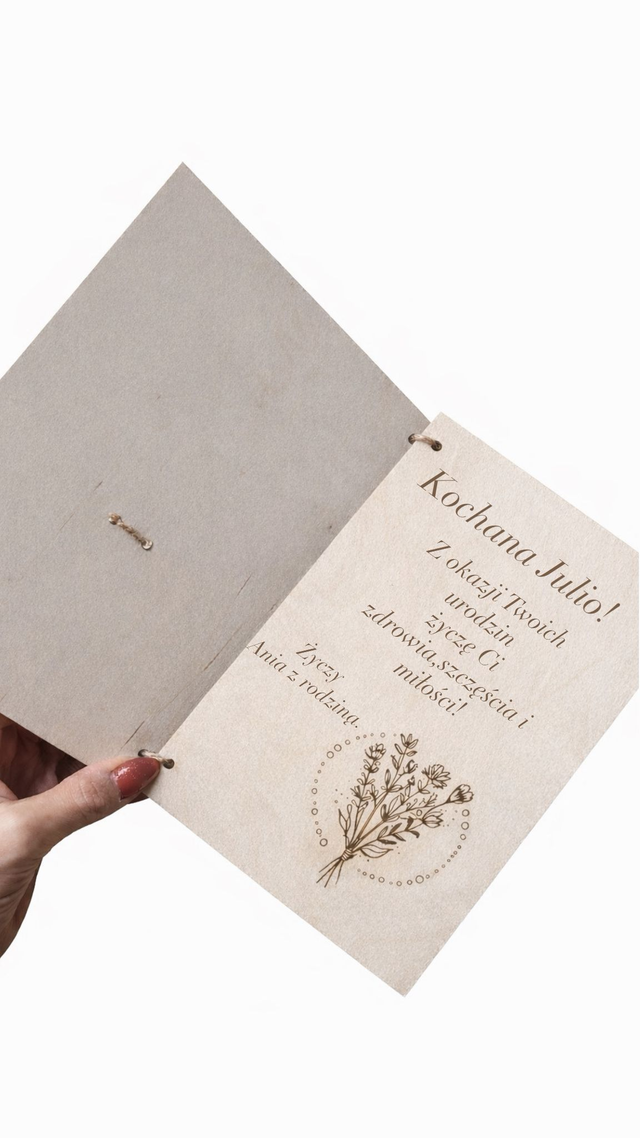 Kochana Julio!
Z okazji Twoich
urodzin
życzę Ci
zdrowia,szczęścia i
miłości!
Życzy
Ania z rodziną.